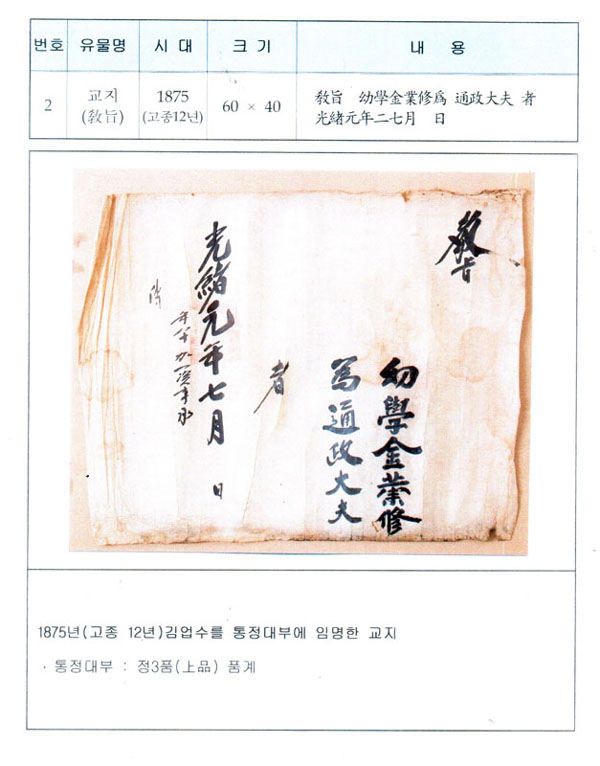 번호 유물명 시대 크기 내용
2 교지(敎旨) 1875(고종12년) 60 × 40 敎旨 幼學金業修爲 通政大夫 者
光緖元年二七月 日
敎旨
幼學金業修
爲通政大夫
者
光緖元年七月 日
1875년(고종 12년)김업수를 통정대부에 임명한 교지
· 통정대부 : 정3품(上品) 품계